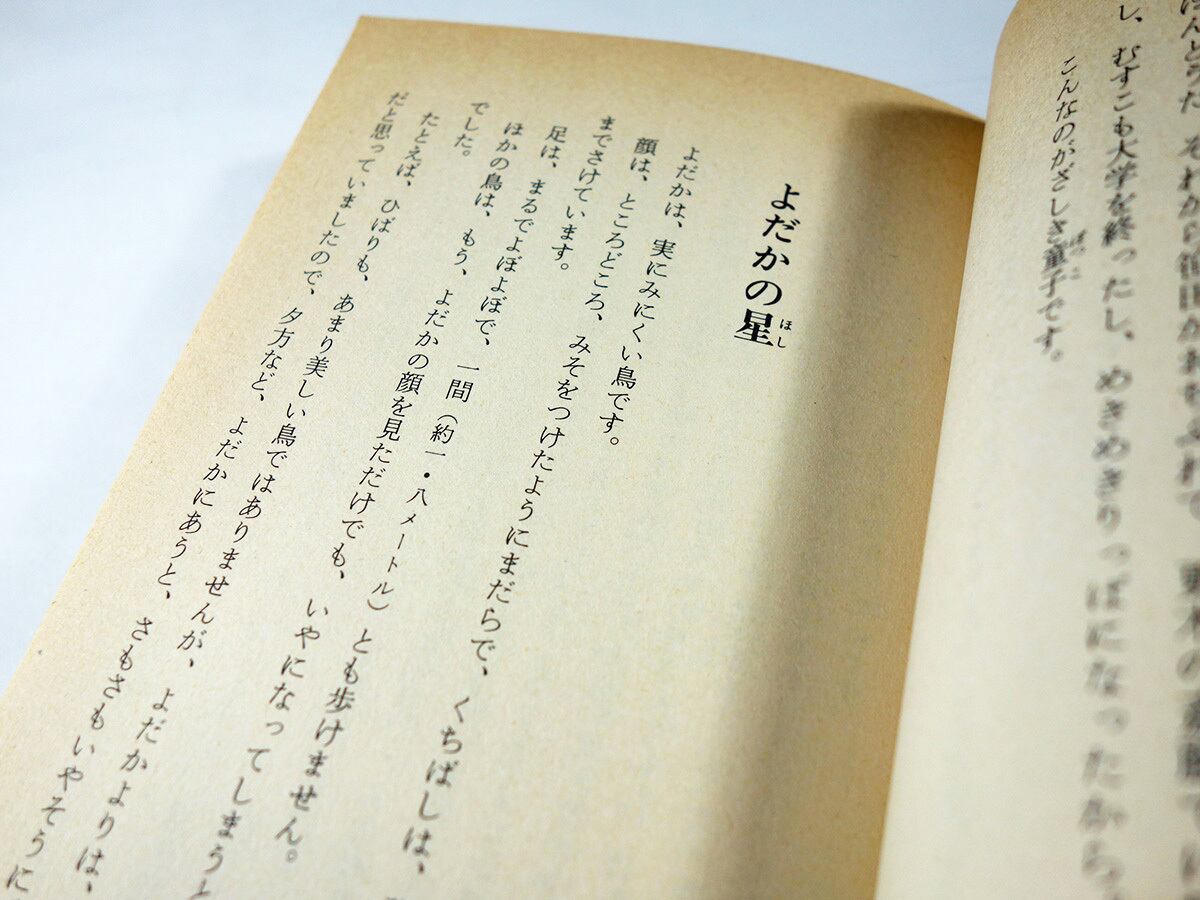 し、むすこも大学を終ったし、めきめきりっぱになったから
こんなのがざしき童子です。
ぼっこ
よだかの星
ほし
よだかは、実にみにくい鳥です。
顔は、ところどころ、みそをつけたようにまだらで、くちばしは、
までさけています。
足は、まるでよぼよぼで、一間(約一・八メートル)とも歩けません。
ほかの鳥は、もう、よだかの顔を見ただけでも、いやになってしまうと
でした。
たとえば、ひばりも、あまり美しい鳥ではありませんが、よだかよりは、
だと思っていましたので、夕方など、よだかにあうと、さもさもいやそうに